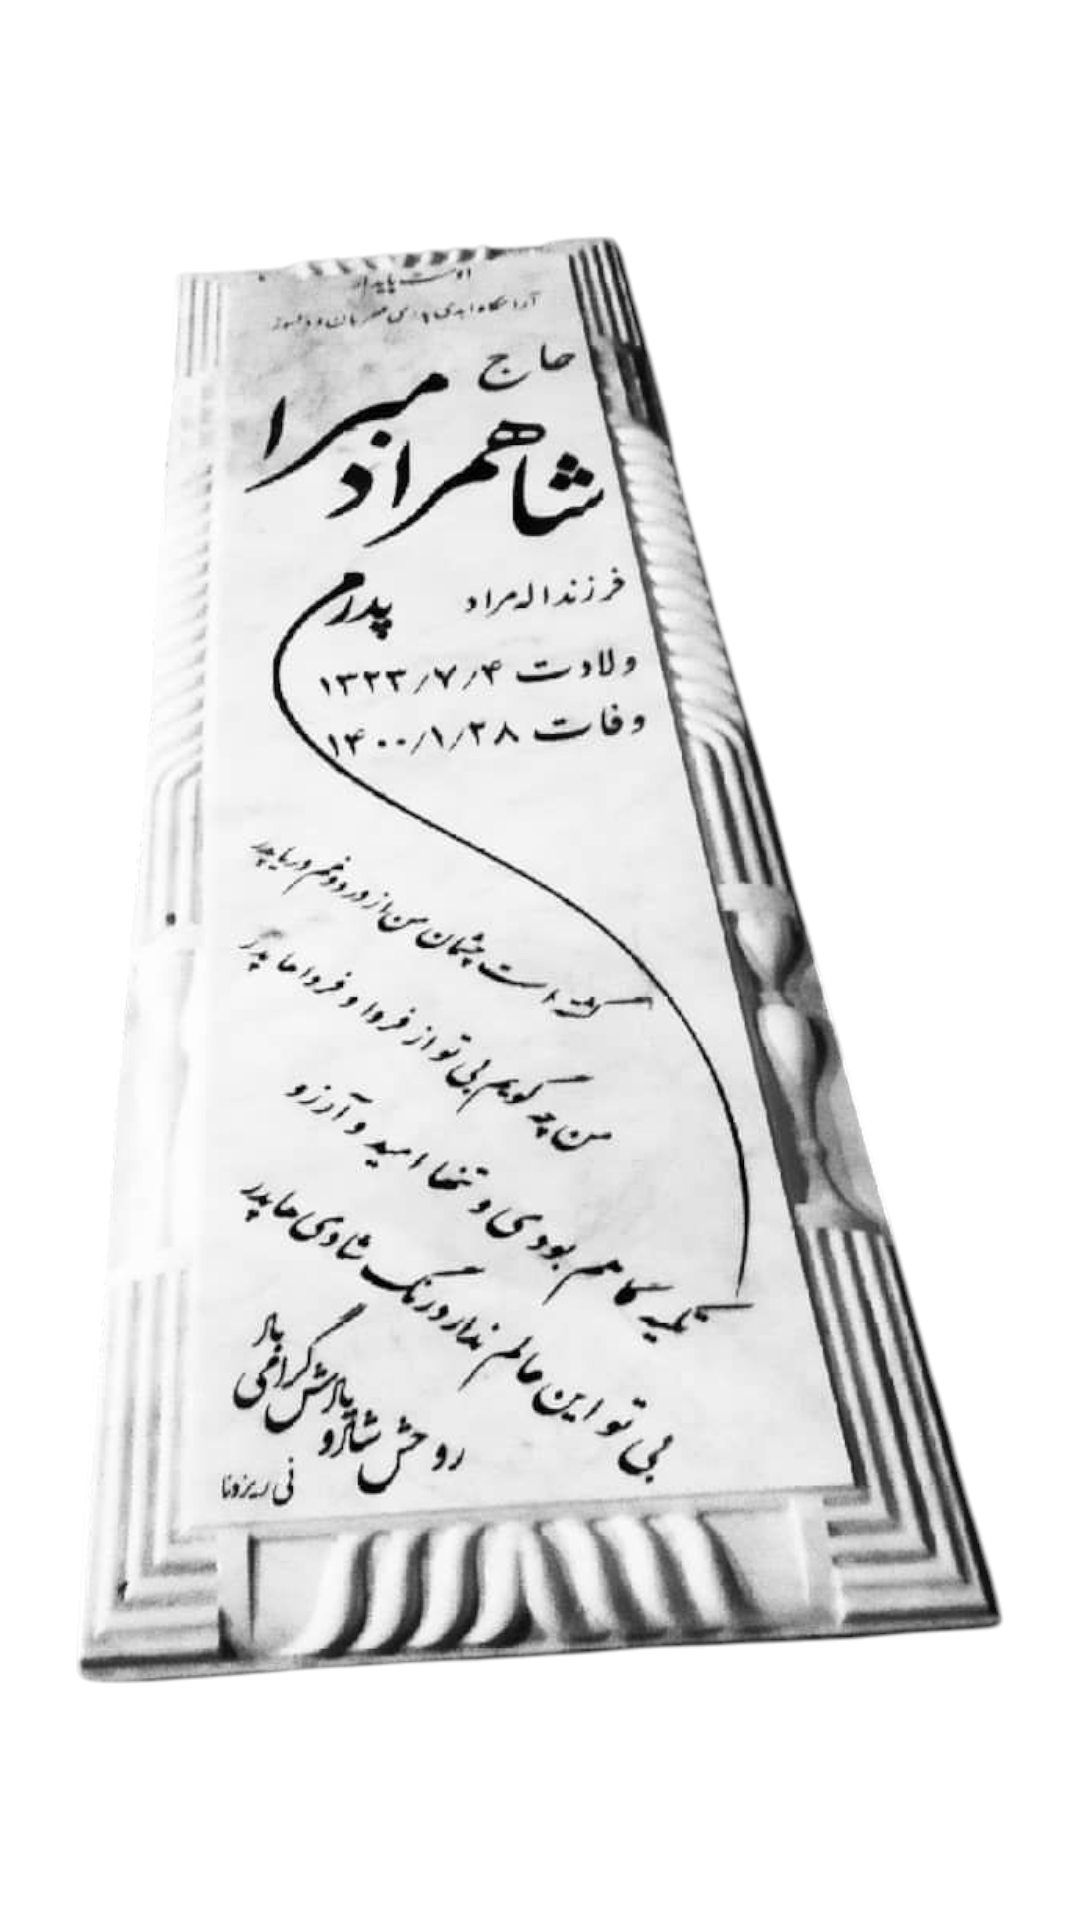 اوست پایدار
آرامگاه ابدی پدری مهربان و دلسوز
حاج
شاهمراد میرا
فرزند اله مراد
پدرم
ولادت ۱۳۲۳/۷/۴
وفات ۱۴۰۰/۱/۲۸
گشته است چشمان من از درد و غم دریا پدر
من چه گویم بی تو از فردا و فرداها پدر
تکیه گاهم بودی و تنها امید و آرزو
بی تو این عالم ندارد رنگ شادی ها پدر
روحش شاد و یادش گرامی باد
نی ریزونا